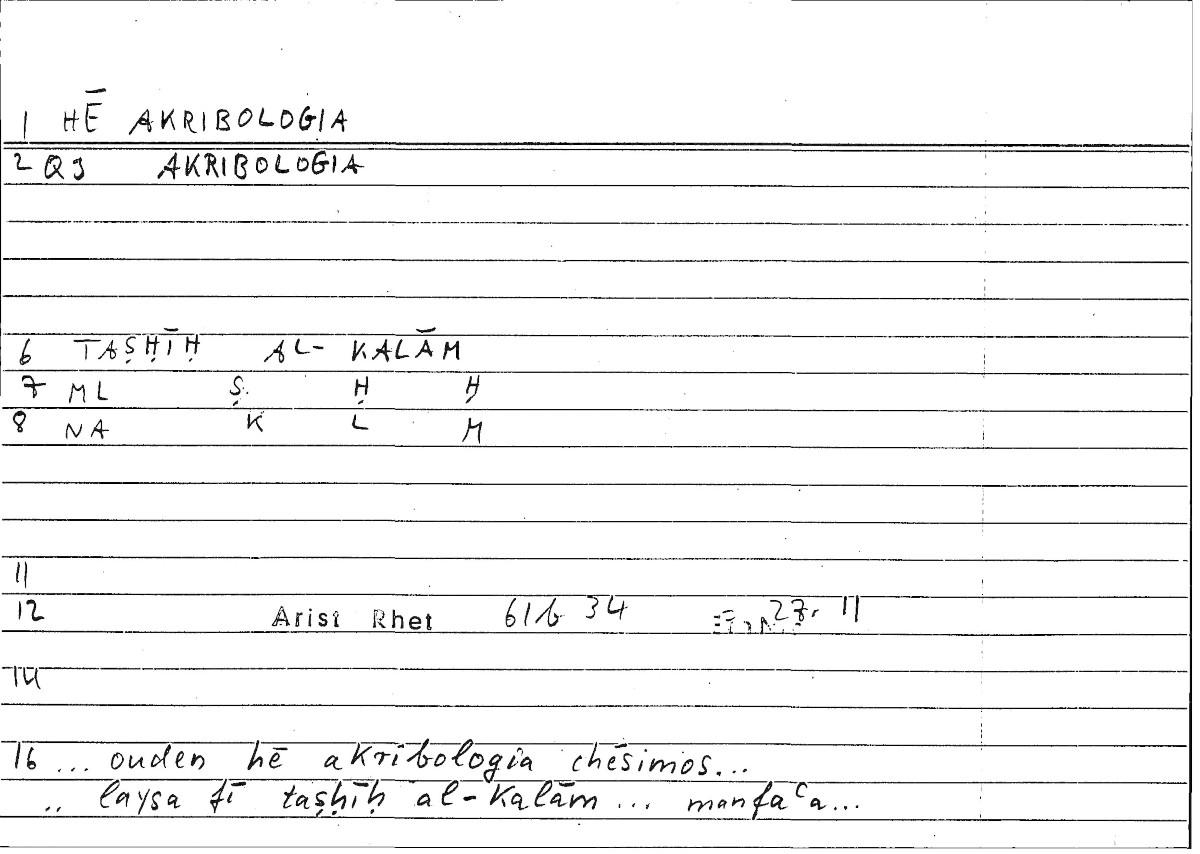 1 HĒ AKRIBOLOGIA
2 QJ AKRIBOLOGIA
6 TAṢḤĪḤ AL- KALĀM
7 ML Ṣ Ḥ Ḥ
8 NA K L M
11
12 Arist Rhet 61b 34 27, 11
14
16 ... ouden hē akribologia chēsimos...
.. laysa fī taṣḥīḥ al-kalām ... manfaʿa...